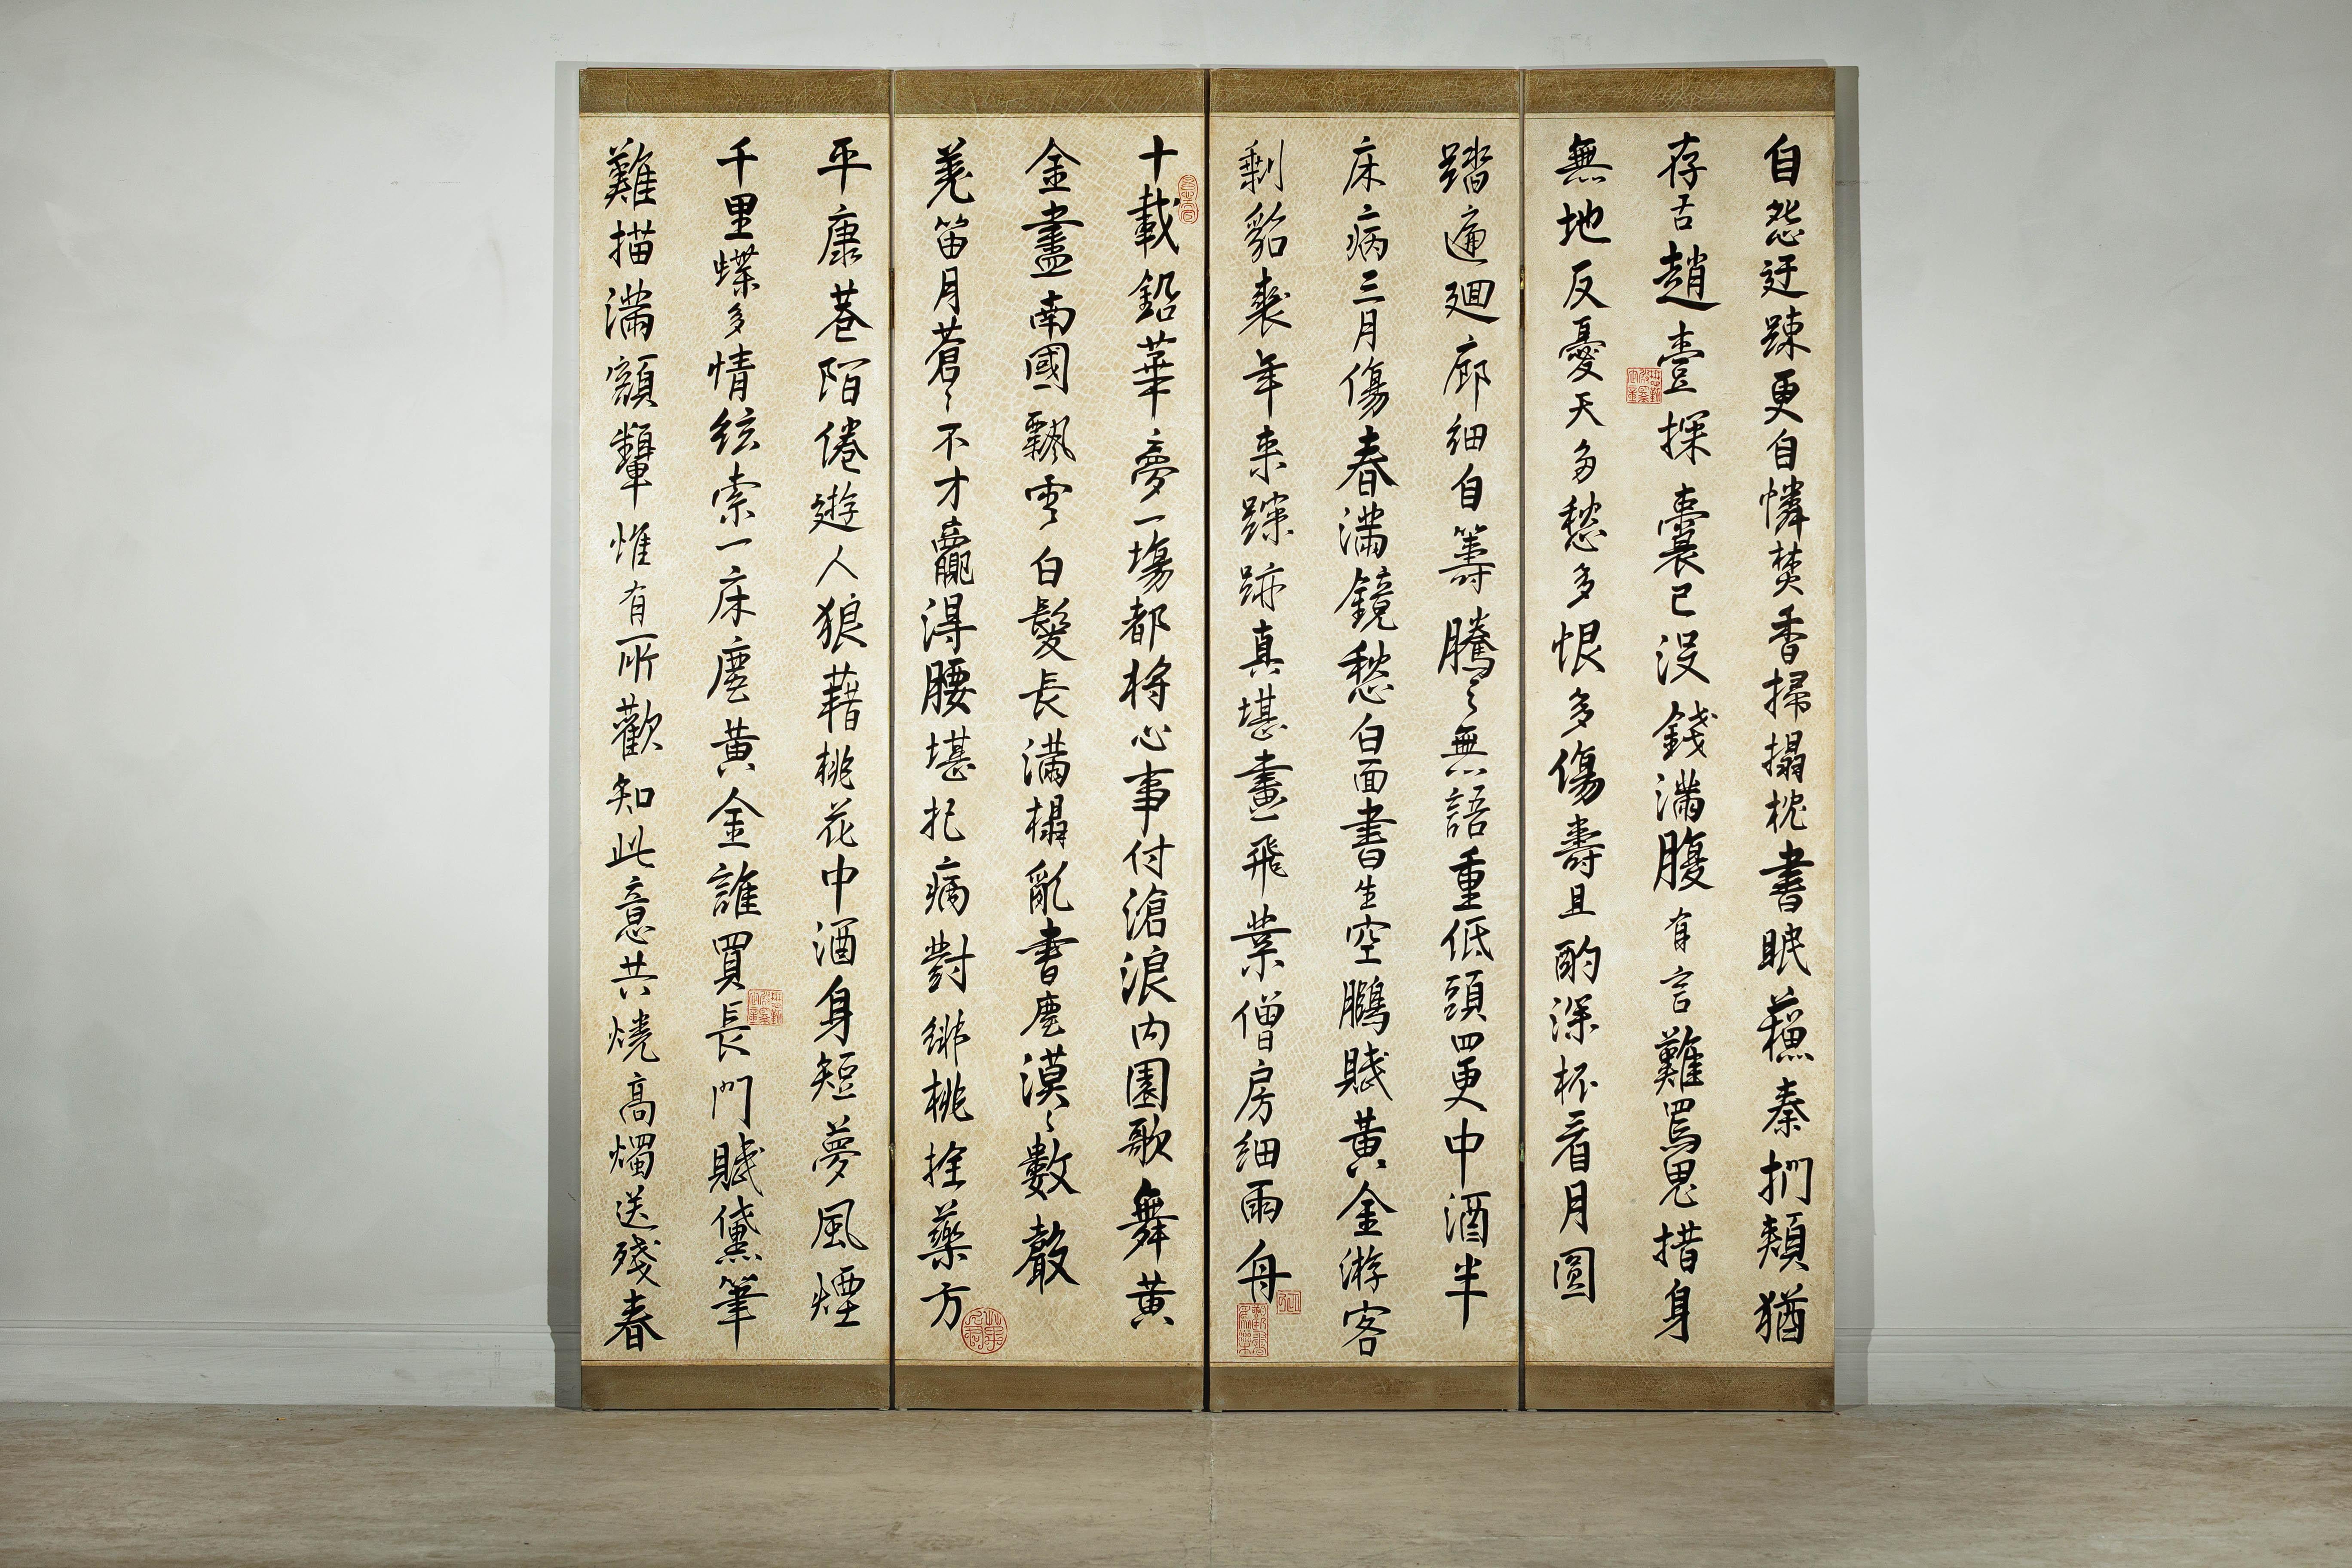 自怨迂踈更自憐焚香掃搨枕書眠蘓秦捫頰猶
存舌趙壹探囊已没錢滿腹有言難罵鬼措身
無地反憂天多愁多恨多傷壽且酌深杯看月圓
踏遍廻廊細自籌騰〻無語重低頭四更中酒半
床病三月傷春滿鏡愁白面書生空鵩賦黃金游客
剩貂裘年來踪跡真堪畫飛葉僧房細雨舟
十載鉛華夢一塲都將心事付滄浪内園歌舞黃
金盡南國飄零白髮長滿榻亂書塵漠〻數聲
羌笛月蒼〻不才贏得腰堪把病對緋桃拴藥方
平康巷陌倦遊人狼藉桃花中酒身短夢風煙
千里蝶多情絃索一床塵黃金誰買長門賦黛筆
難描滿額顰惟有所歡知此意共燒高燭送殘春